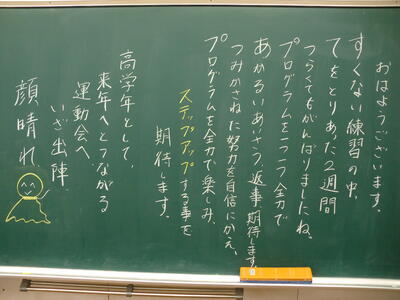 おはようございます。
すくない練習の中、
てをとりあた2週間
つらくてもがんばりましたね。
プログラムを一つ一つ全力で
あかるいあいさつ、返事期待します。
つみかさねた努力を自信にかえ、
プログラムを全力で楽しみ、
ステップアップする事を
期待します。
高学年として、
来年へとつながる
運動会へ
いざ出陣
顔晴れ